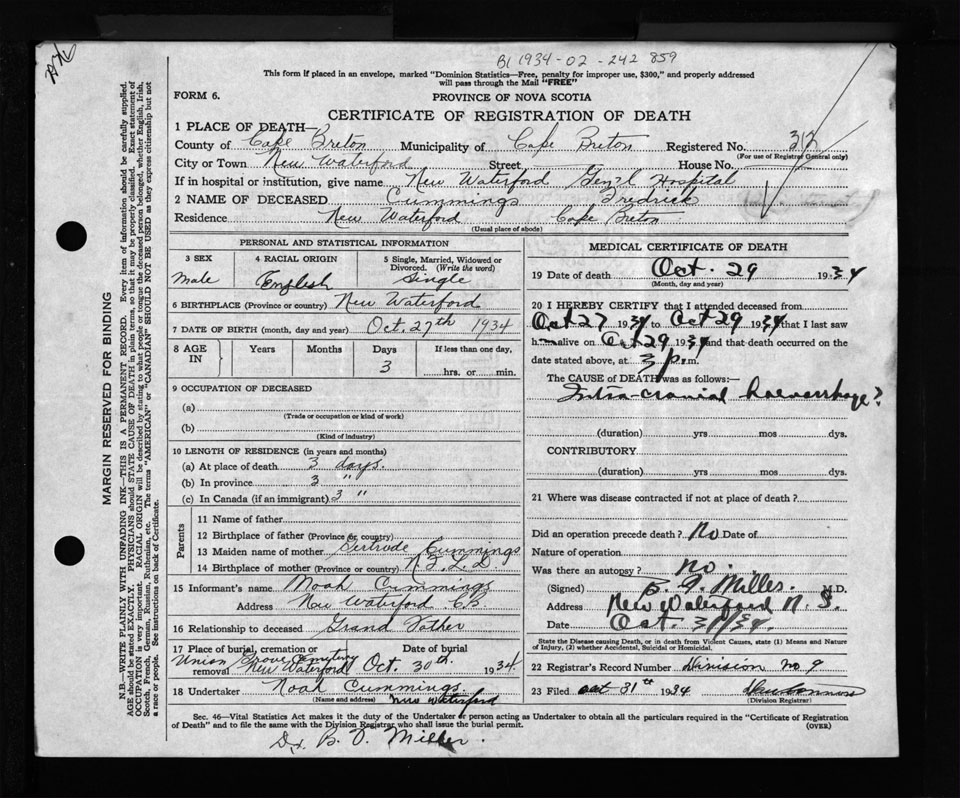 B1 1934-02-242 859
This form if placed in an envelope, marked "Dominion Statistics—Free, penalty for improper use, $300," and properly addressed
will pass through the Mail "FREE"
FORM 6.
PROVINCE OF NOVA SCOTIA
CERTIFICATE OF REGISTRATION OF DEATH
1 PLACE OF DEATH—
County of Cape Breton Municipality of Cape Breton Registered No. 312
(For use of Registrar General only)
City or Town New Waterford Street House No.
If in hospital or institution, give name New Waterford Gen'l Hospital
2 NAME OF DECEASED Cummings Fredrick
Residence New Waterford Cape Breton
(Usual place of abode)
MARGIN RESERVED FOR BINDING
N.B.—WRITE PLAINLY WITH UNFADING INK—THIS IS A PERMANENT RECORD. Every item of information should be carefully supplied.
AGE should be stated EXACTLY. PHYSICIANS should STATE CAUSE OF DEATH in plain terms, so that it may be properly classified. Exact statement of
OCCUPATION is very important. RACIAL ORIGIN will be described by stating to what people or tongue the deceased person belonged, whether English, Irish,
Scotch, French, German, Russian, Ruthenian, etc. The terms "AMERICAN" or "CANADIAN" SHOULD NOT BE USED as they express citizenship but not
a race or people. See instructions on back of Certificate.
PERSONAL AND STATISTICAL INFORMATION
3 SEX
Male
4 RACIAL ORIGIN
English
5 Single, Married, Widowed or
Divorced. (Write the word)
Single
6 BIRTHPLACE (Province or country) New Waterford
7 DATE OF BIRTH (month, day and year) Oct. 27th 1934
8 AGE
IN
Years Months Days If less than one day,
3 hrs. or min.
9 OCCUPATION OF DECEASED
(a)
(Trade or occupation or kind of work)
(b)
(Kind of industry)
10 LENGTH OF RESIDENCE (in years and months)
(a) At place of death 3 days.
(b) In province 3 "
(c) In Canada (if an immigrant) 3 "
Parents
11 Name of father
12 Birthplace of father (Province or country)
13 Maiden name of mother Gertrude Cummings
14 Birthplace of mother (Province or country) N.F.L.D
15 Informant's name Noah Cummings
Address New Waterford C.B.
16 Relationship to deceased Grand Father
17 Place of burial, cremation or Date of burial
removal Union Grove Cemetery New Waterford Oct. 30th. 1934
18 Undertaker Noah Cummings
(Name and address) New Waterford
MEDICAL CERTIFICATE OF DEATH
19 Date of death Oct. 29 1934
(Month, day and year)
20 I HEREBY CERTIFY that I attended deceased from
Oct 27 1934 to Oct 29 1934 that I last saw
h alive on Oct 29 1934 and that death occurred on the
date stated above, at 3 p.m.
The CAUSE of DEATH was as follows:—
Intra-cranial haemorrhage?
(duration) yrs mos dys.
CONTRIBUTORY
(duration) yrs mos dys.
21 Where was disease contracted if not at place of death?
Did an operation precede death? No Date of
Nature of operation
Was there an autopsy? No.
(Signed) Miller M.D.
Address New Waterford N.S.
Date Oct. 1934.
State the Disease causing Death, or in death from Violent Causes, state (1) Means and Nature
of Injury, (2) whether Accidental, Suicidal or Homicidal.
22 Registrar's Record Number division no. 9
23 Filed oct 31th 1934
(Division Registrar)
Sec. 46—Vital Statistics Act makes it the duty of the Undertaker or person acting as Undertaker to obtain all the particulars required in the "Certificate of Registration
of Death" and to file the same with the Division Registrar who shall issue the burial permit.
(OVER)
Dr. Miller.